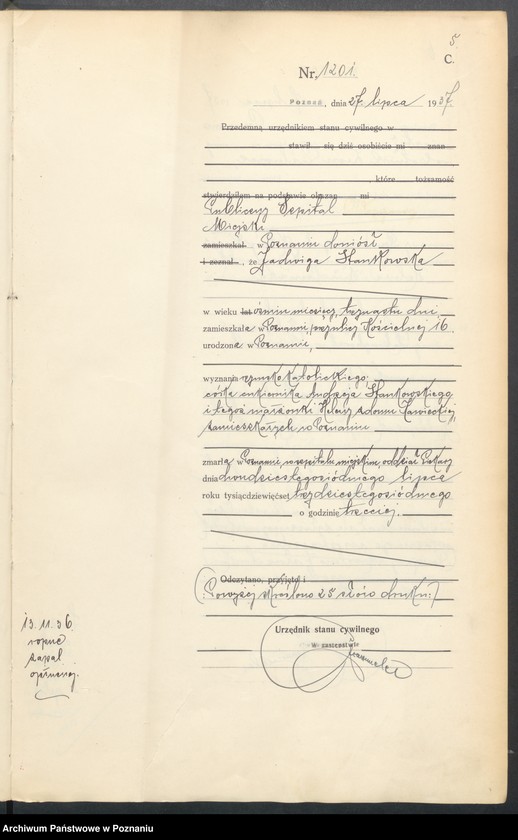 5
C.
Nr. 1201.
Poznań, dnia 27. lipca 1937.
Przedemną urzędnikiem stanu cywilnego w
stawił się dziś osobiście mi znan
, które tożsamość
stwierdziłem na podstawie okazan mi
Publiczny Szpital
Miejski
zamieszkał w Poznaniu doniósł
i zeznał, że Jadwiga Stankowska
w wieku lat ośmiu miesięcy, trzynastu dni
zamieszkała w Poznaniu, przy ulicy Kościelnej 16.
urodzona w Poznaniu,
wyznania rzymsko katolickiego,
córka cukiernika Andrzeja Stankowskiego
i tegoż małżonki Heleny z domu Ławeckiej,
zamieszkałych w Poznaniu
zmarła w Poznaniu, w szpitalu miejskim, oddział
dnia dwudziestego siódmego lipca
roku tysiącdziewięćset trzydziestego siódmego
o godzinie trzeciej.
Odczytano, przyjęto i
(: Powyżej skreślono 25 słów druku :)
Urzędnik stanu cywilnego
w zastępstwie
13.11.36
ropne
zapal.
opłucnej.
Archiwum Państwowe w Poznaniu